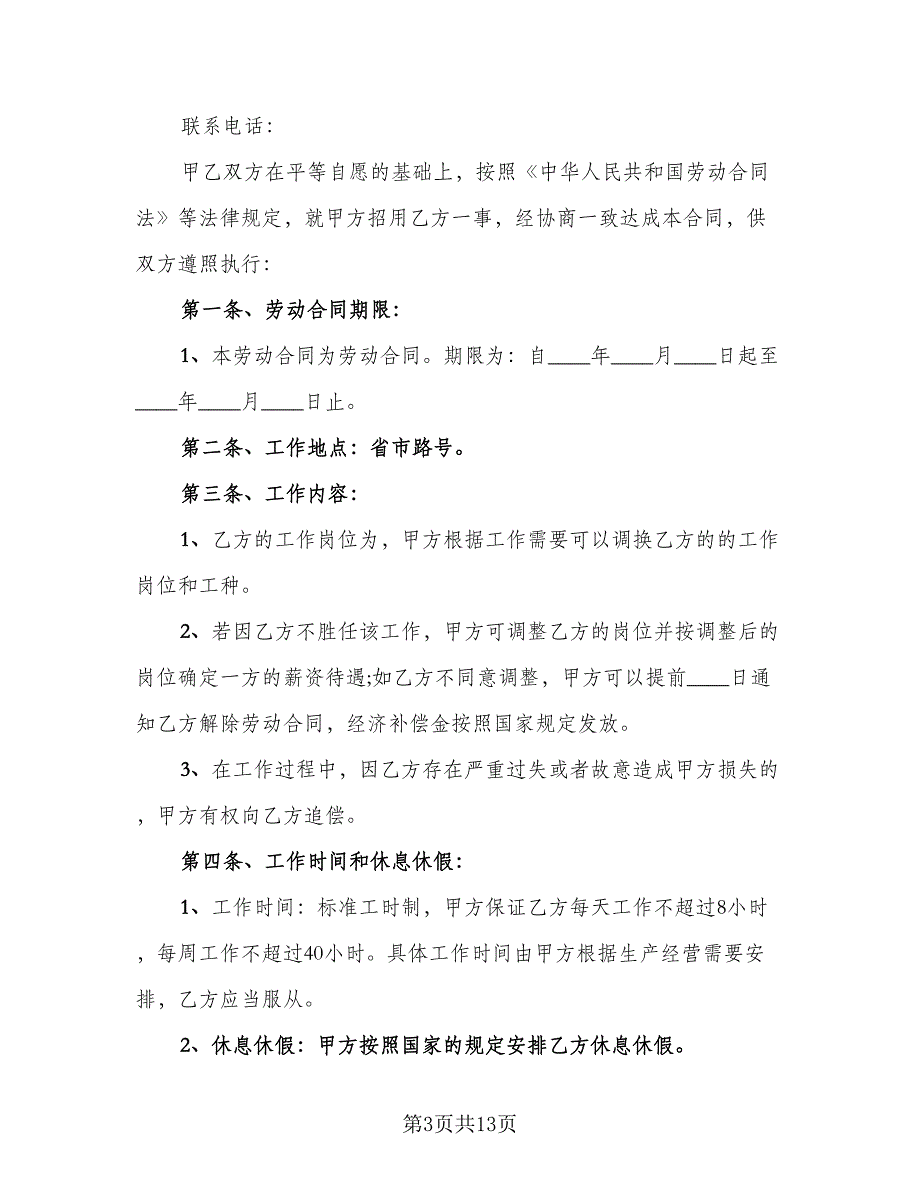 联系电话：
甲乙双方在平等自愿的基础上，按照《中华人民共和国劳动合同
法》等法律规定，就甲方招用乙方一事，经协商一致达成本合同，供
双方遵照执行：
第一条、劳动合同期限：
1、本劳动合同为劳动合同。期限为：自____年____月____日起至
____年____月____日止。
第二条、工作地点：省市路号。
第三条、工作内容：
1、乙方的工作岗位为，甲方根据工作需要可以调换乙方的的工作
岗位和工种。
2、若因乙方不胜任该工作，甲方可调整乙方的岗位并按调整后的
岗位确定一方的薪资待遇;如乙方不同意调整，甲方可以提前____日通
知乙方解除劳动合同，经济补偿金按照国家规定发放。
3、在工作过程中，因乙方存在严重过失或者故意造成甲方损失的
，甲方有权向乙方追偿。
第四条、工作时间和休息休假：
1、工作时间：标准工时制，甲方保证乙方每天工作不超过8小时
，每周工作不超过40小时。具体工作时间由甲方根据生产经营需要安
排，乙方应当服从。
2、休息休假：甲方按照国家的规定安排乙方休息休假。
第3页共13页